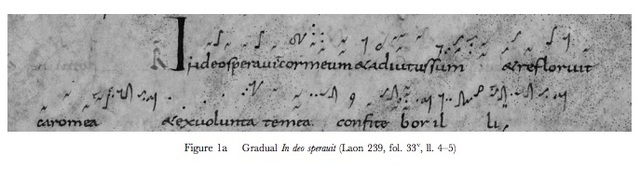 R Indeosperauitcormeum&adiutussum &refloruit
caromea &exuolunta temea confite bor il li,
Figure 1a Gradual In deo sperauit (Laon 239, fol. 33ᵛ, ll. 4–5)